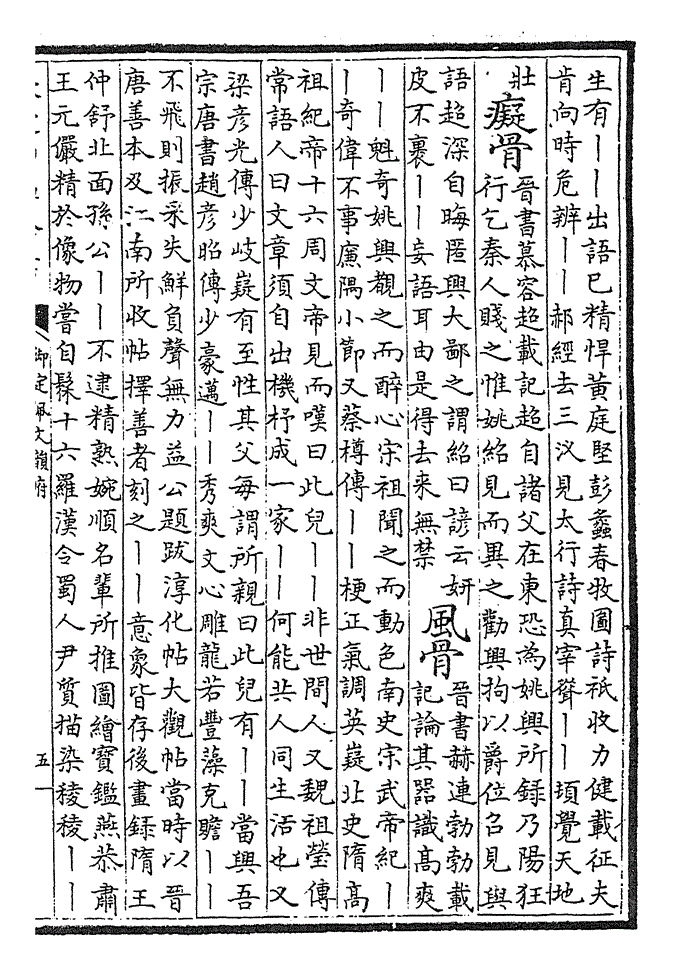 生有丨丨出語已精悍黃庭堅彭蠡春牧圖詩祗收力健載征夫
肯向時危辨丨丨郝經去三汊見太行詩真宰聳丨丨頊覺天地
壯
癡骨
晉書慕容超載記超自諸父在東恐為姚興所錄乃陽狂
行乞秦人賤之惟姚紹見而異之勸興拘以爵位召見與
語超深自晦匿興大鄙之謂紹曰諺云妍
皮不裹丨丨妄語耳由是得去来無禁
風骨
晉書赫連勃勃載
記論其器識高爽
丨丨魁奇姚興覩之而醉心宋祖聞之而動色南史宋武帝紀丨
丨奇偉不事廉隅小節又蔡樽傳丨丨梗正氣調英嶷北史隋高
祖紀帝十六周文帝見而嘆曰此兒丨丨非世間人又魏祖瑩傳
常語人曰文章須自出機杼成一家丨丨何能共人同生活也又
梁彦光傳少岐嶷有至性其父每謂所親曰此兒有丨丨當興吾
宗唐書趙彦昭傳少豪邁丨丨秀爽文心雕龍若豐藻克贍丨丨
不飛則振采失鮮負聲無力益公題跋淳化帖大觀帖當時以晉
唐善本及江南所收帖擇善者刻之丨丨意象皆存後畫錄隋王
仲舒北面孫公丨丨不逮精熟婉順名輩所推圖繪寶鑑燕恭肅
王元儼精於像物嘗自髹十六羅漢令蜀人尹質描染稜稜丨丨
御定佩文韻府
五一